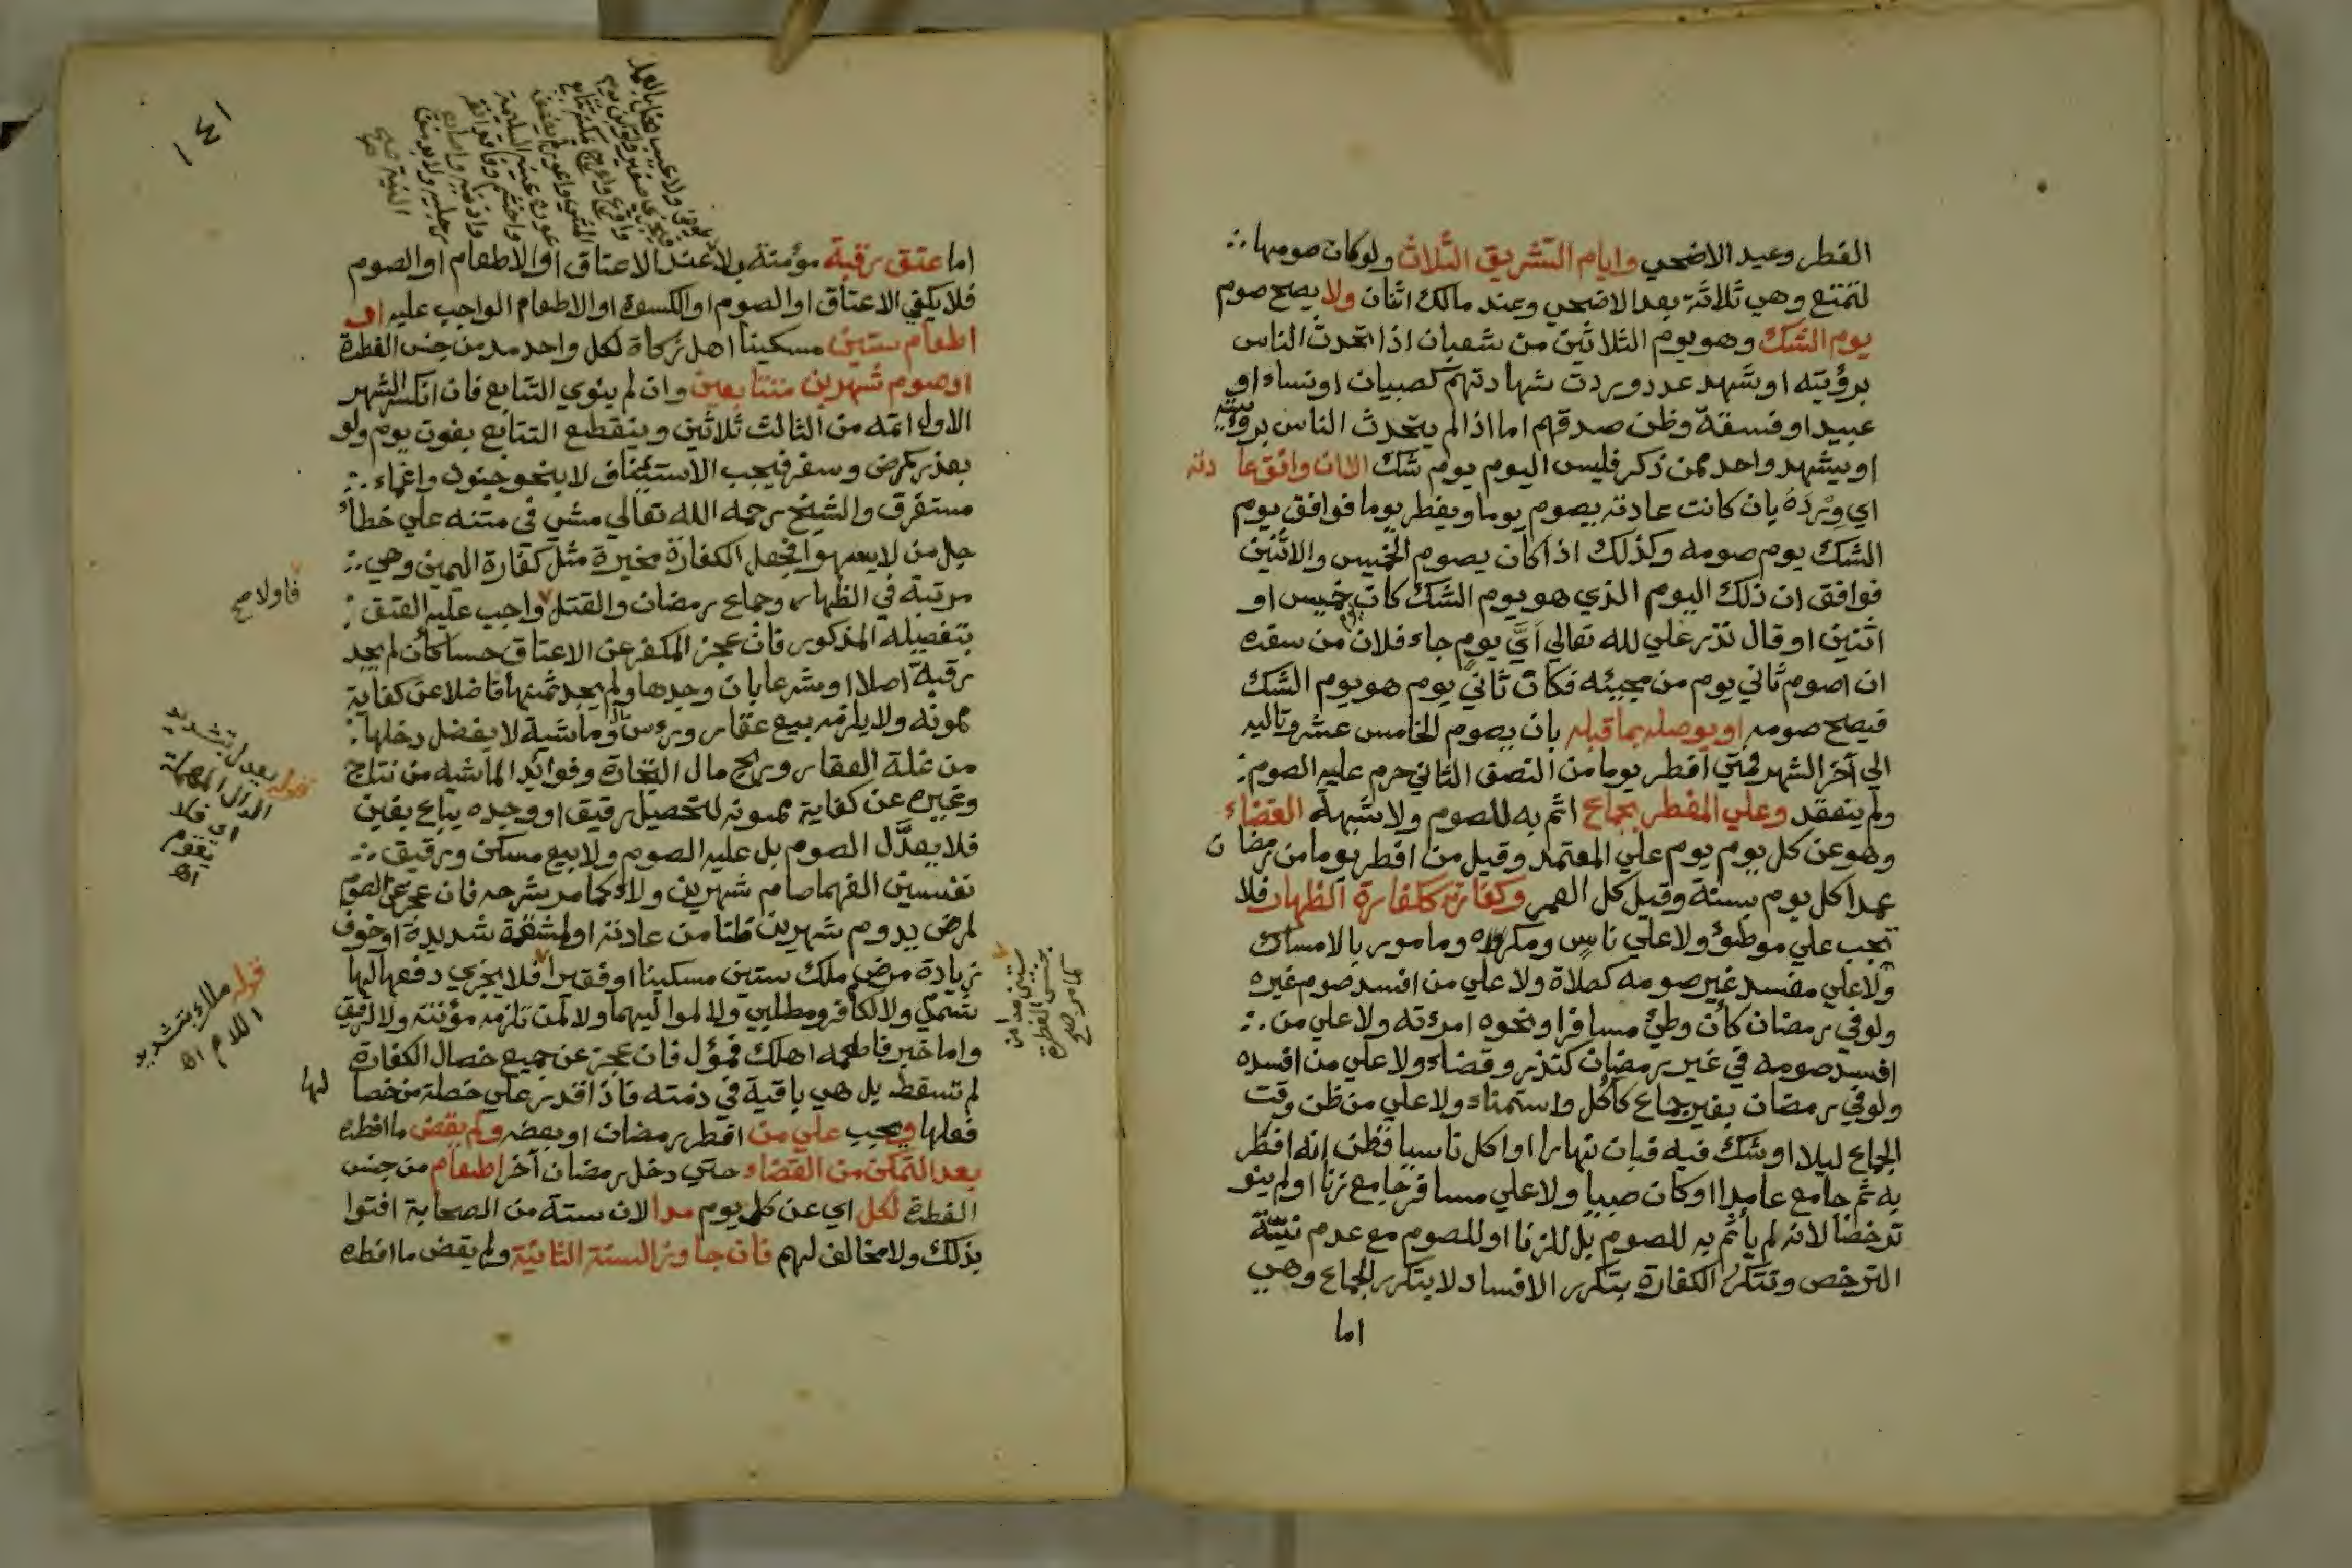 الفطر وعيد الاضحي وايام التشريق الثلاث ولو كان صومها
لتمتع وهي ثلاثة بعد الاضحي وعند مالك اثنان ولا يصح صوم
يوم الشك وهو يوم الثلاثين من شعبان اذا تحدث الناس
برؤيته او شهد عدد وردت شهادتهم كصبيان او نساء او
عبيد او فسقة وظن صدقهم اما اذا لم يتحدث الناس برؤيته
او يشهد واحد ممن ذكر فليس اليوم يوم شك الا ان وافق عادته
اي وِرْدَهُ بان كانت عادته يصوم يوما ويفطر يوما فوافق يوم
الشك يوم صومه وكذلك اذا كان يصوم الخميس والاثنين
فوافق ان ذلك اليوم الذي هو يوم الشك كان يوم خميس او
اثنين او قال نذر علي لله تعالي اَيَّ يومٍ جاء فلان من سفره
ان اصوم ثاني يوم من مجيئه فكان ثاني يوم هو يوم الشك
فيصح صومه او يوصله بما قبله بان يصوم الخامس عشر وتاليه
الي آخر الشهر فمتي افطر يوما من النصف الثاني حرم عليه الصوم
ولم ينعقد وعلي المفطر بجماع اثم به للصوم ولا شبهة القضاء
وهو عن كل يوم يوم علي المعتمد وقيل من افطر يوما من رمضان
عمدا كل يوم بسنة وقيل كل العمر وكفارته ككفارة الظهار فلا
تجب علي موطوئ ولا علي ناسٍ ومكره وما مور بالامساك
ولا علي مفسد غير صومه كصلاة ولا علي من افسد صوم غيره
ولو في رمضان كأن وطئ مسافر او نحوه امرءته ولا علي من
افسد صومه في غير رمضان كنذر وقضاء ولا علي من افسده
ولو في رمضان بغير جماع كأكل واستمناء ولا علي من ظن وقت
الجماع ليلا او شك فيه فبان نهارا او اكل ناسيا فظن انه افطر
به ثم جامع عامدا او كان صبيا ولا علي مسافر جامع زنا او لم ينو
ترخصا لانه لم يأثم به للصوم بل للزنا او للصوم مع عدم نيّة
الترخص وتتكرر الكفارة بتكرر الافساد لا بتكرر الجماع وهي
اما
١٤١
اما عتق رقبة مؤمنة بلا عند الاعتاق او الاطعام او الصوم
فلا يكفي الاعتاق او الصوم او الكسوة او الاطعام الواجب عليه او
اطعام ستين مسكينا اهل زكاة لكل واحد مد من جنس الفطرة
او صوم شهرين متتابعين وان لم ينوي التتابع فان انكسر الشهر
الاول اتمه من الثالث ثلاثين وينقطع التتابع بفوت يوم ولو
بعذر كمرض وسفر فيجب الاستئناف لا بنحو جنون واغماء
مستغرق والشيخ رحمه الله تعالي مشي في متنه علي خطأ
جل من لا يسهوا فجعل الكفارة مخيرة مثل كفارة اليمين وهي
مرتبة في الظهار وجماع رمضان والقتل واجب عليه العتق
بتفصيله المذكور فان عجز المكفر عن الاعتاق حسا كأن لم يجد
رقبة اصلا او شرعا بان وجدها ولم يجد ثمنها فاضلا عن كفاية
ممونه ولا يلزمه بيع عقار ورءس مال وما شية لا يفضل دخلها
من غلة العقار وربح مال التجارة وفوائد الماشيه من نتاج
وغيره عن كفاية ممونه لتحصيل رقيق او وجده يباع بغبن
فلا يعدَّل الصوم بل عليه الصوم ولا بيع مسكن ورقيق
نفيسين الفهما صام شهرين ولاءً كما مر شرحه فان عجز عن الصوم
لمرض يدوم شهرين ظنا من عادته او لمشقة شديدة او خوف
زيادة مرض ملك ستين مسكينا او فقيرا فلا يجزي دفعها لها
شمي ولا لكافر ومطلبي ولا لمواليهما ولا لمن تلزمه مؤنته ولا لرقيق
واما خبر فاطعمه اهلك فمؤل فان عجز عن جميع خصال الكفارة
لم تسقط بل هي باقية في ذمته فاذا قدر علي خصلة من خصالها
فعلها ويجب علي من افطر رمضان او بعضه ولم يقض ما افطره
بعد التمكن من القضاء حتي دخل رمضان آخر اطعام من جنس
الفطرة لكل اي عن كل يوم مدا لان ستة من الصحابة افتوا
بذلك ولا مخالف لهم فان جاوز السنة الثانية ولم يقض ما افطره
فاولا صح
قوله يعدل بتشديد
الدال المهملة
اي فلا
يقوم
اه
قوله ملاء بتشديد
اللام اه
ستين مدا من
جنس الفطرة
كما مر صح